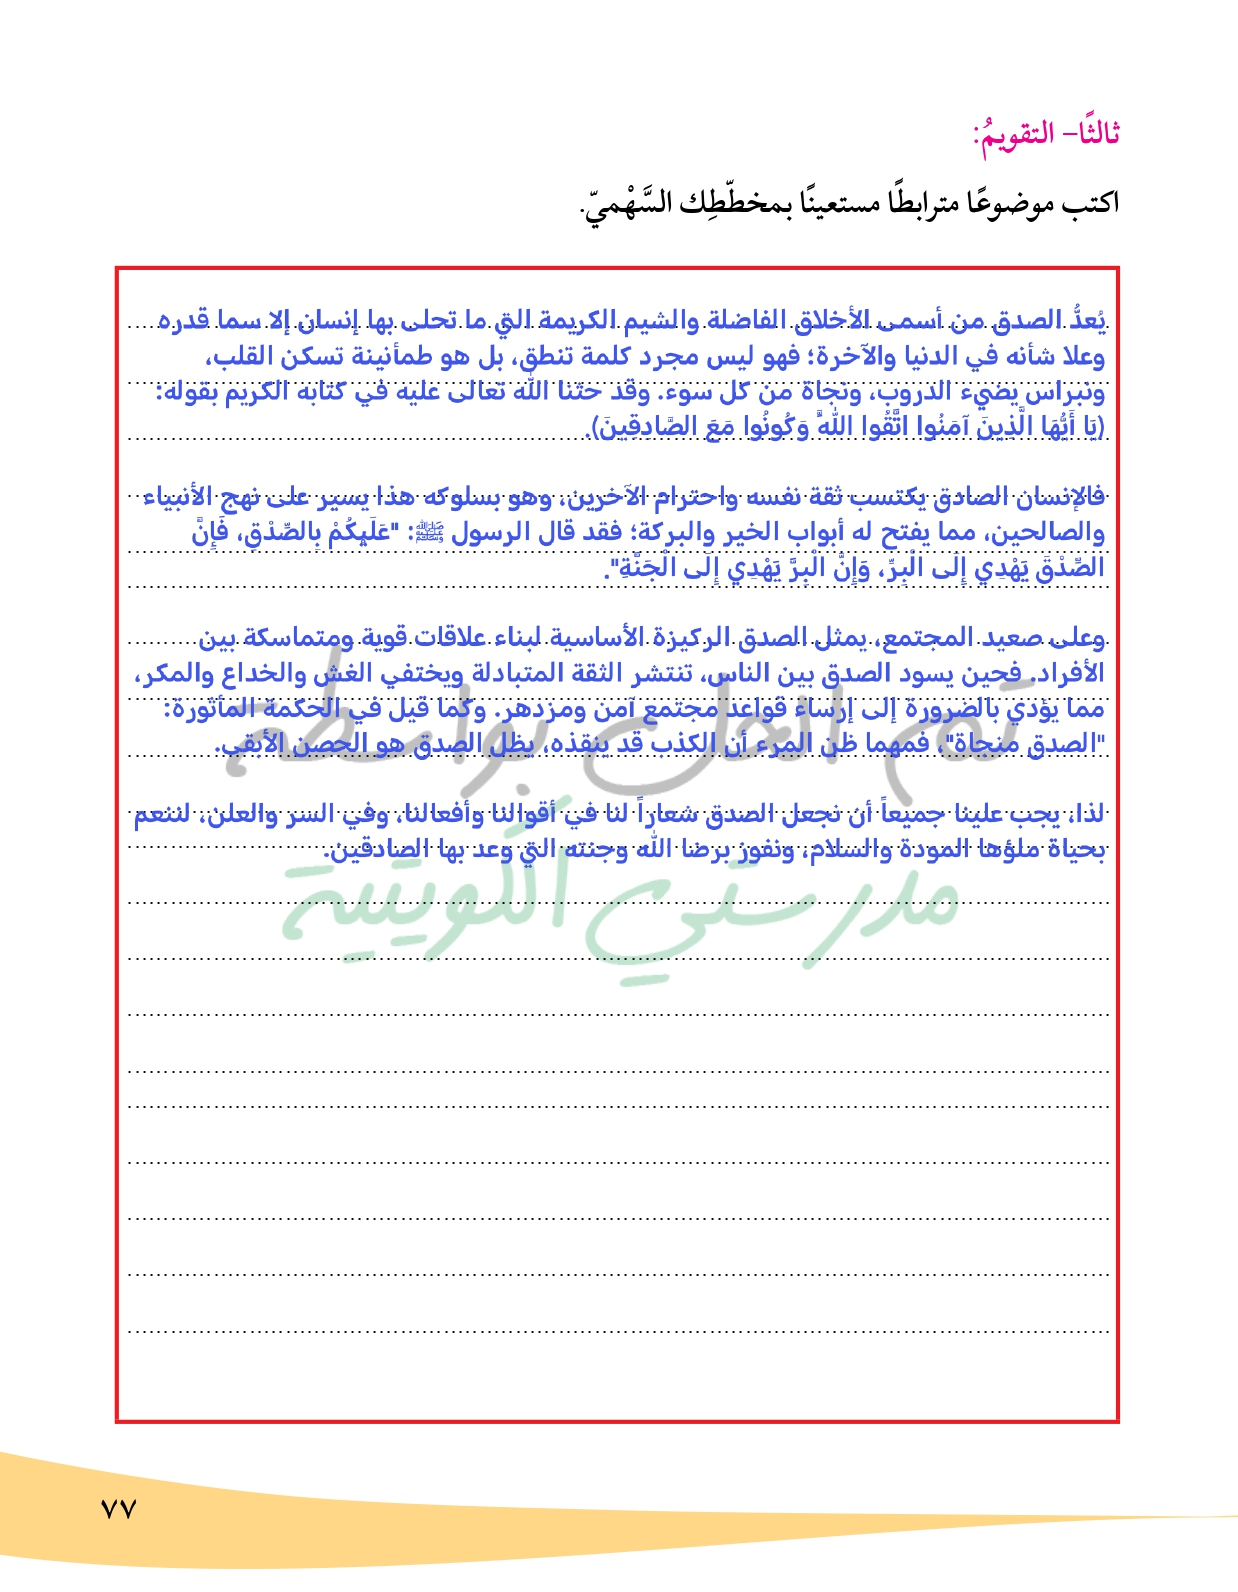 ثالثًا– التقويمُ:
اكتب موضوعًا مترابطًا مستعينًا بمخطّطِك السَّهْميّ.
يُعدُّ الصدق من أسمى الأخلاق الفاضلة والشيم الكريمة التي ما تحلى بها إنسان إلا سما قدره
وعلا شأنه في الدنيا والآخرة؛ فهو ليس مجرد كلمة تنطق، بل هو طمأنينة تسكن القلب،
ونبراس يضيء الدروب، ونجاة من كل سوء. وقد حثنا الله تعالى عليه في كتابه الكريم بقوله:
(يَا أَيُّهَا الَّذِينَ آمَنُوا اتَّقُوا اللَّهَ وَكُونُوا مَعَ الصَّادِقِينَ).
فالإنسان الصادق يكتسب ثقة نفسه واحترام الآخرين، وهو بسلوكه هذا يسير على نهج الأنبياء
والصالحين، مما يفتح له أبواب الخير والبركة؛ فقد قال الرسول ﷺ: "عَلَيكُمْ بِالصِّدْقِ، فَإِنَّ
الصِّدْقَ يَهْدِي إِلَى الْبِرِّ، وَإِنَّ الْبِرَّ يَهْدِي إِلَى الْجَنَّةِ".
وعلى صعيد المجتمع، يمثل الصدق الركيزة الأساسية لبناء علاقات قوية ومتماسكة بين
الأفراد. فحين يسود الصدق بين الناس، تنتشر الثقة المتبادلة ويختفي الغش والخداع والمكر،
مما يؤدي بالضرورة إلى إرساء قواعد مجتمع آمن ومزدهر. وكما قيل في الحكمة المأثورة:
"الصدق منجاة"، فمهما ظن المرء أن الكذب قد ينقذه، يظل الصدق هو الحصن الأبقى.
لذا، يجب علينا جميعاً أن نجعل الصدق شعاراً لنا في أقوالنا وأفعالنا، وفي السر والعلن، لننعم
بحياة ملؤها المودة والسلام، ونفوز برضا الله وجنته التي وعد بها الصادقين.
تم الحل بواسطة
مدرستي الكويتية
٧٧